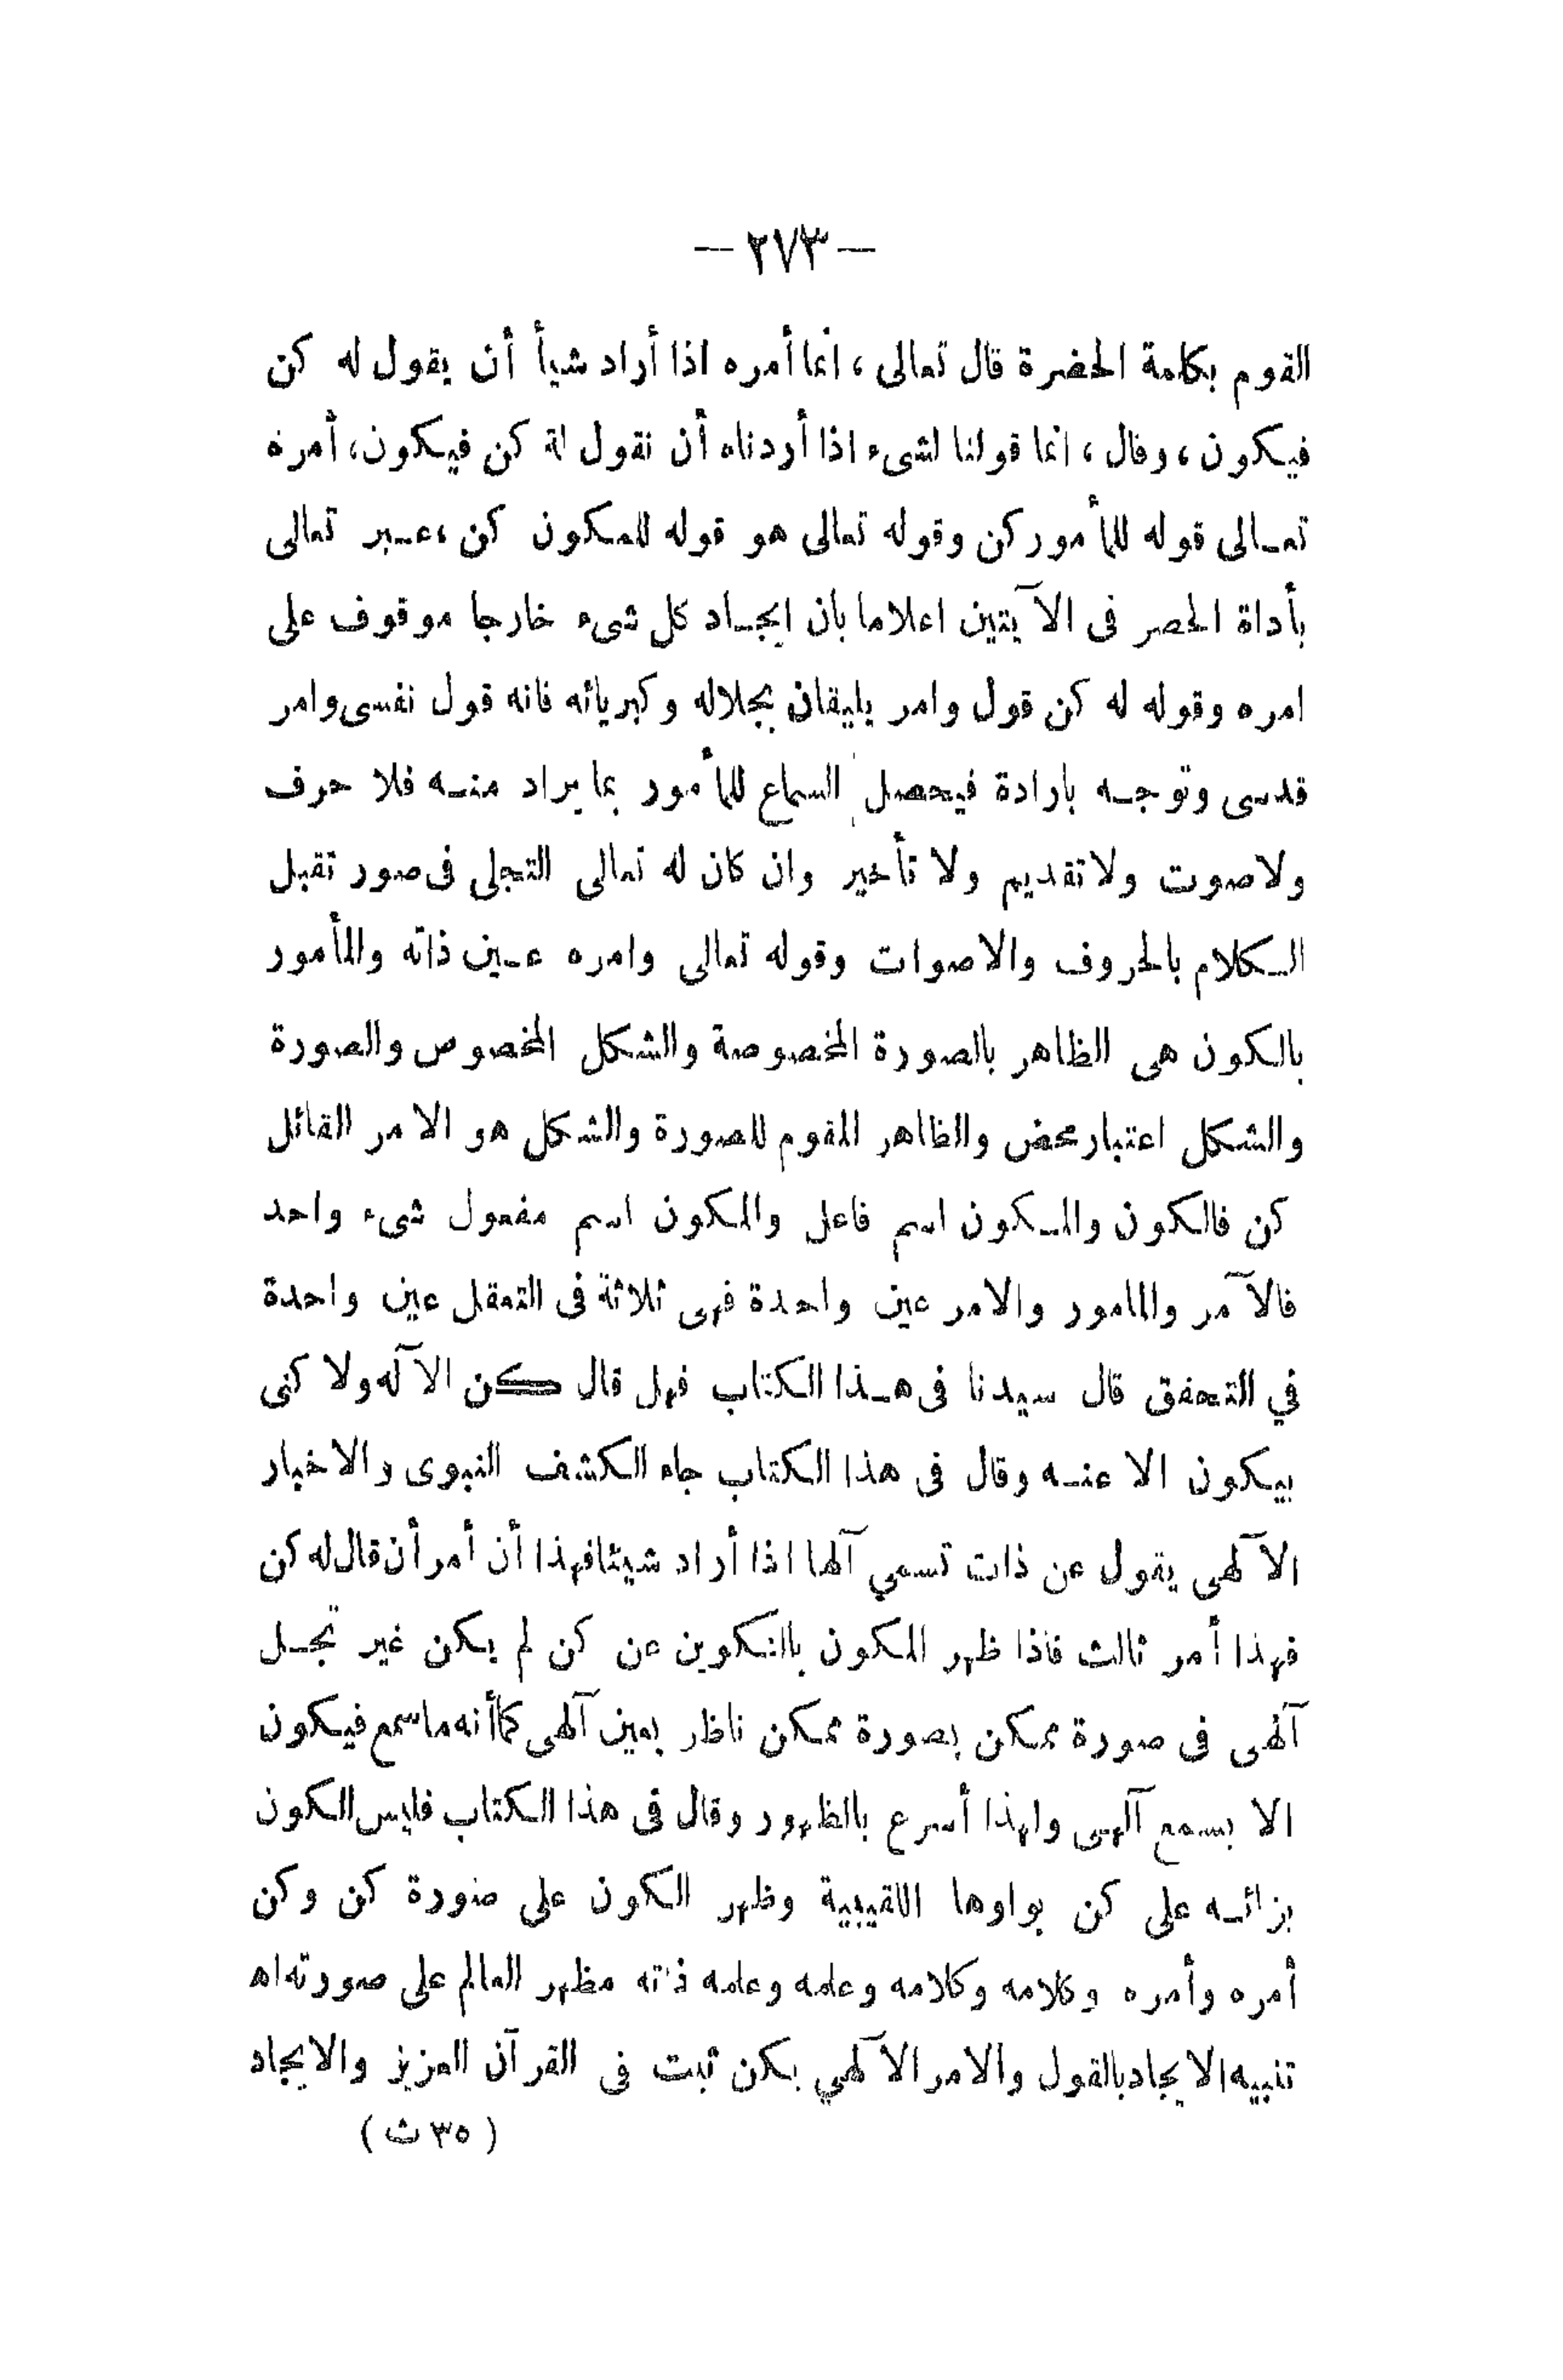 — ٢٧٣ —
القوم بكلمة الحضرة قال تعالى ، انما أمره اذا أراد شيأ أن يقول له كن
فيكون ، وقال ، انما قولنا لشىء اذا أردناه أن نقول له كن فيكون، أمره
تعالى قوله للمأمور كن وقوله تعالى هو قوله للمكون كن ، عبر تعالى
بأداة الحصر فى الآيتين اعلاما بان ايجاد كل شىء خارجا موقوف على
امره وقوله له كن قول وامر يليقان بجلاله وكبريائه فانه قول نفسى وامر
قدسى وتوجه بارادة فيحصل السماع للمأمور بما يراد منه فلا حرف
ولا صوت ولا تقديم ولا تأخير وان كان له تعالى التجلى فى صور تقبل
الكلام بالحروف والاصوات وقوله تعالى وامره عين ذاته والمأمور
بالكون هى الظاهر بالصورة المخصوصة والشكل المخصوص والصورة
والشكل اعتبار محض والظاهر المقوم للصورة والشكل هو الامر القائل
كن فالكون والمكون اسم فاعل والمكون اسم مفعول شىء واحد
فالآمر والمامور والامر عين واحدة فهى ثلاثة فى التعقل عين واحدة
في التحقق قال سيدنا فى هذا الكتاب فهل قال كن الا آله ولا كنى
بيكون الا عنه وقال فى هذا الكتاب جاء الكشف النبوى والاخبار
الآلهى يقول عن ذات تسمي آلها اذا أراد شيئا فهذا أن أمر أن قال له كن
فهذا أمر ثالث فاذا ظهر المكون بالتكوين عن كن لم يكن غير تجل
آلهى فى صورة ممكن بصورة ممكن ناظر بعين آلهى كما أنه ما سمع فيكون
الا بسمع آلهى ولهذا أسرع بالظهور وقال فى هذا الكتاب فليس الكون
بزائه على كن بواوها الاقيبية وظهر الكون على صورة كن وكن
أمره وأمره وكلامه وكلامه وعلمه وعلمه ذاته مظهر العالم على صورته اه
تنبيه الايجاد بالقول والامر الآلهي بكن ثبت فى القرآن العزيز والايجاد
( ٣٥ ث )